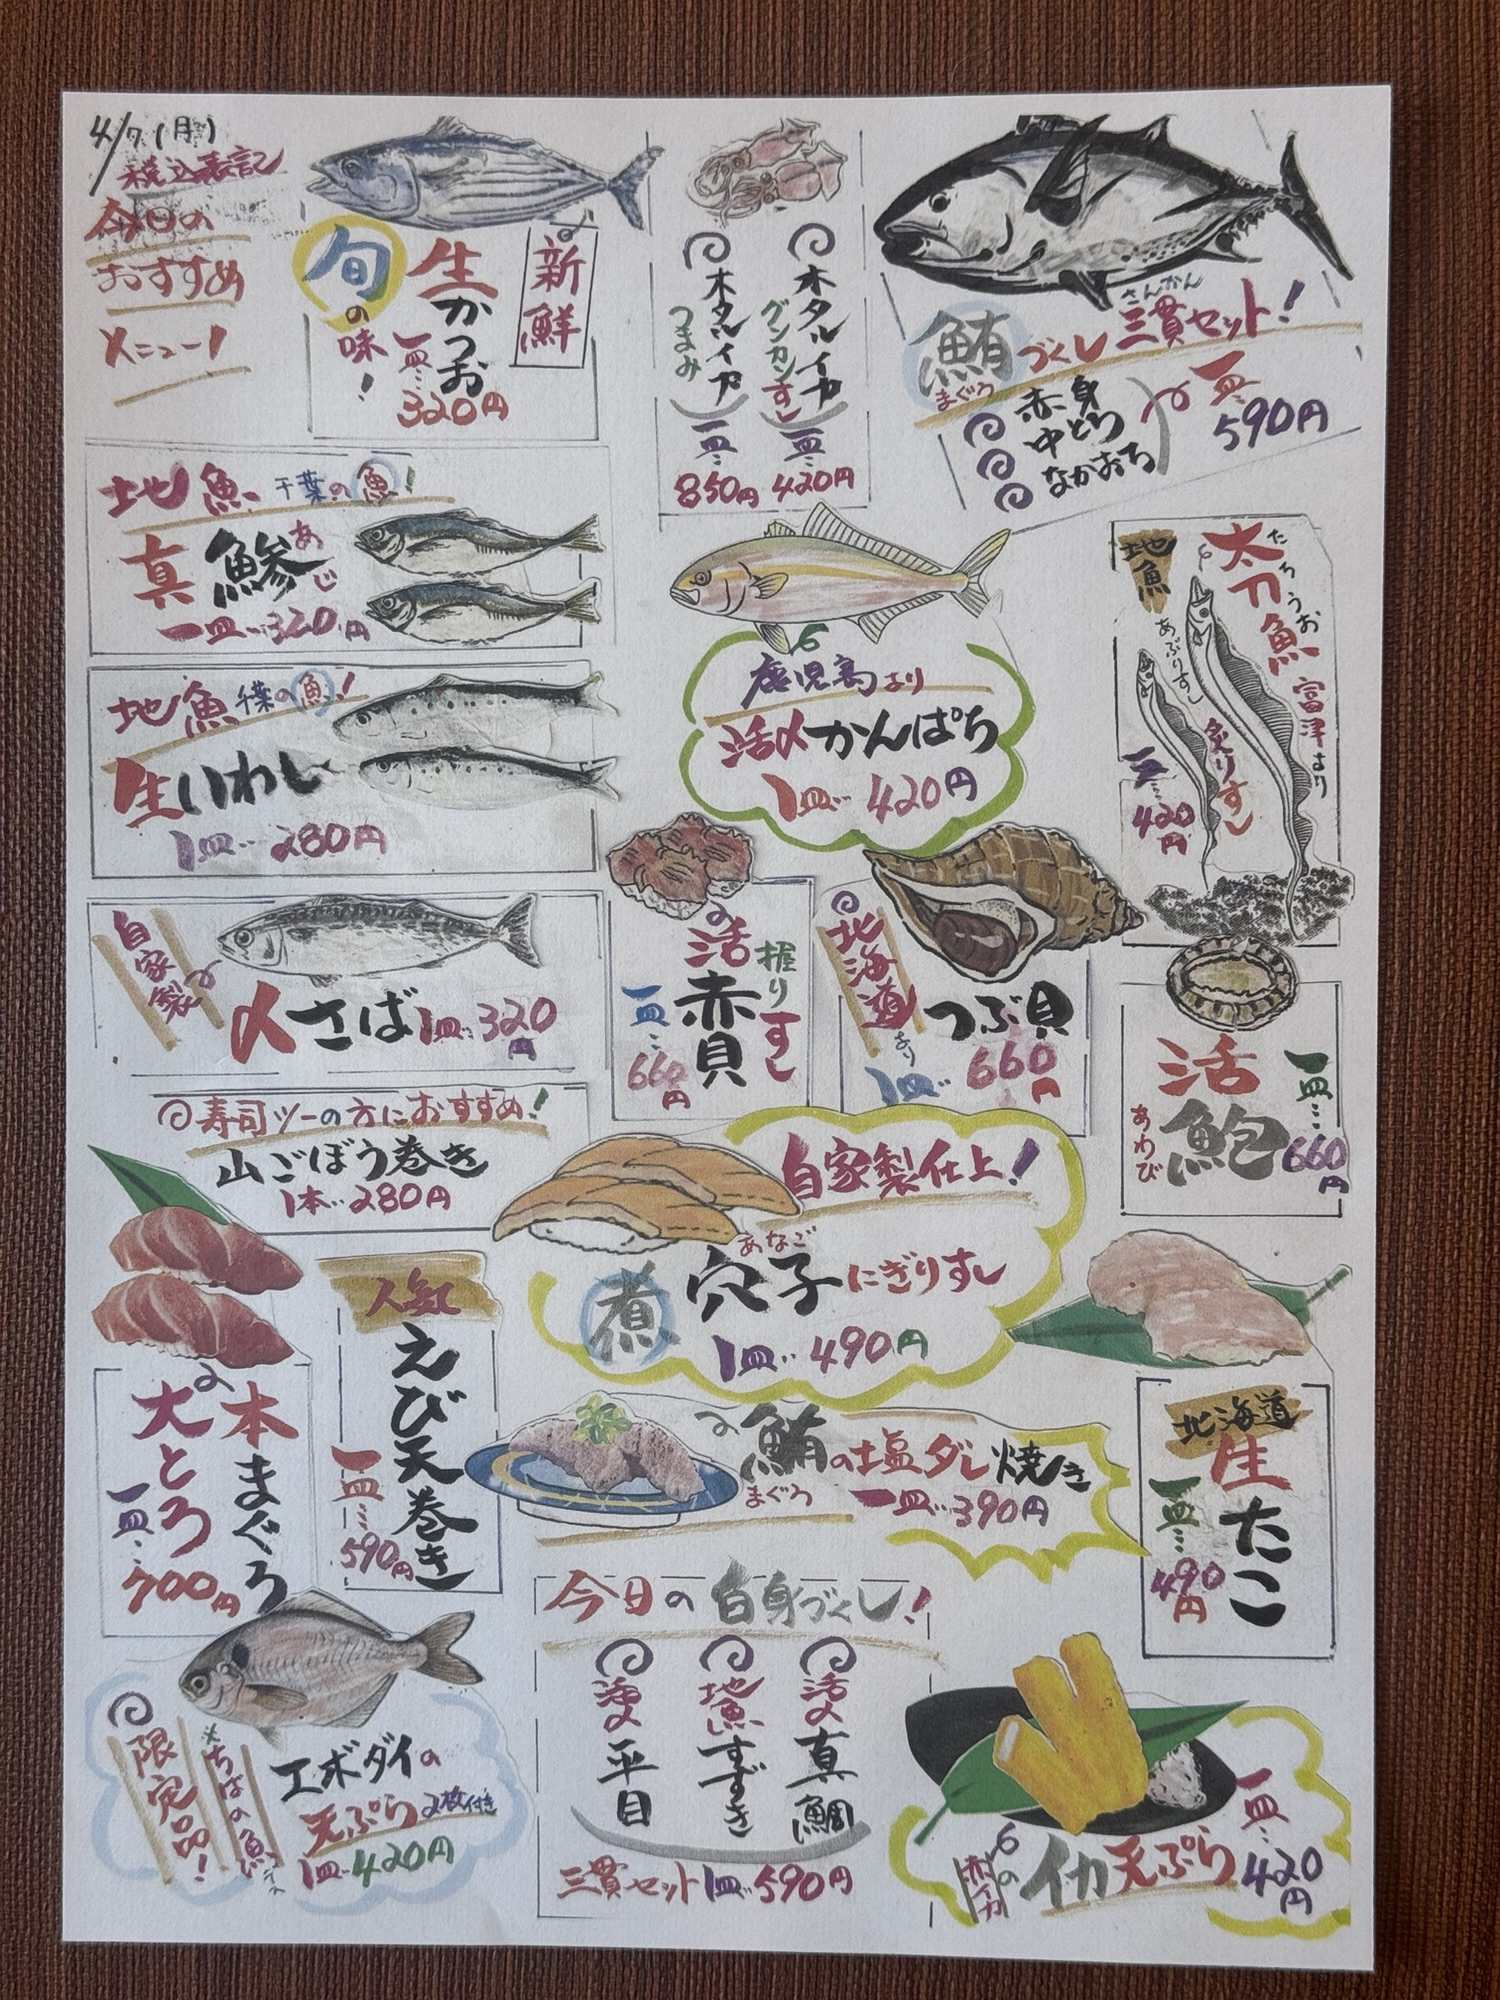 4/7(月)
税込表記
今日の
おすすめ
メニュー!
新鮮
生かつお
旬の味!
一皿…320円
ホタルイカ
グンカンすし
一皿…420円
ホタルイカ
つまみ
一皿…850円
さんかん
鮪づくし三貫セット!
まぐろ
赤身
中とろ
なかおち
一皿…590円
地魚 千葉の魚!
真鯵
あじ
一皿…320円
地魚 千葉の魚!
生いわし
1皿…280円
鹿児島より
活〆かんぱち
1皿…420円
地魚
太刀魚
たちうお
富津より
あぶりすし
炙りすし
一皿…420円
自家製
〆さば 1皿…320円
活赤貝
握りすし
一皿…660円
北海道より
つぶ貝
1皿…660円
活鮑
あわび
一皿…660円
寿司ツーの方におすすめ!
山ごぼう巻き
1本…280円
自家製仕上!
あなご
煮穴子にぎりすし
1皿…490円
本まぐろ
大とろ
一皿…700円
人気
えび天巻き
一皿…590円
鮪の塩ダレ焼き
まぐろ
一皿…390円
北海道
生たこ
一皿…490円
限定品!
ちばの魚
エボダイの
天ぷら2枚付き
1皿…420円
今日の白身づくし!
活〆真鯛
地魚すずき
活〆平目
三貫セット1皿…590円
赤イカの
イカ天ぷら
一皿…420円